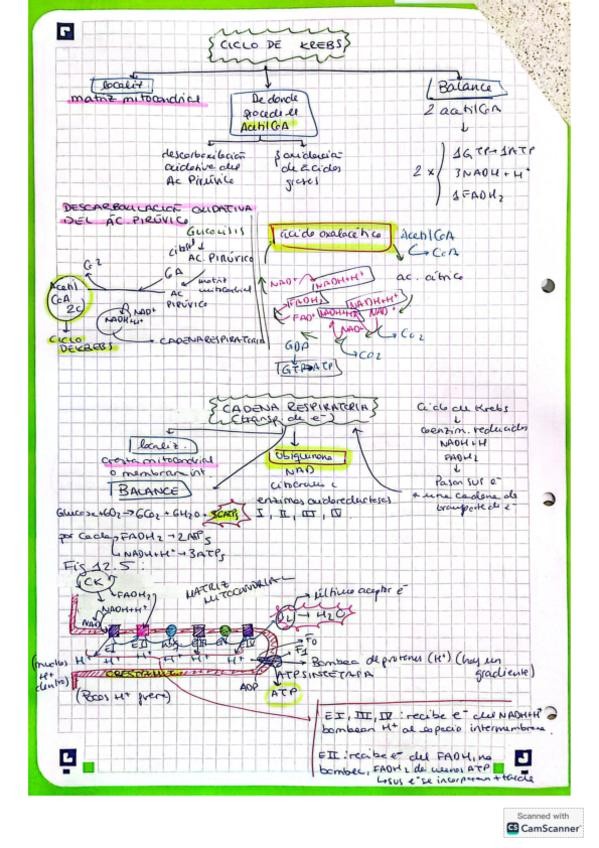 CICLO DE KREBS
localiz
matriz mitocondrial
De donde
procede el
Acetil CoA
Balance
2 acetilCoA
descarboxilación
oxidativa del
Ac Pirúvico
β oxidación
de ácidos
grasos
2 x
1GTP→1ATP
3NADH+H+
1FADH2
DESCARBOXILACIÓN OXIDATIVA
DEL ÁC. PIRÚVICO
Glucolisis
AC. PIRÚVICO
matriz
mitocondrial
AC
PIRÚVICO
Acetil
CoA
2C
NAD+
NADH+H+
CICLO
DE KREBS
CADENA RESPIRATORIA
ácido oxalacético
AcetilCoA
CoA
ac. cítrico
NAD+
NADH+H+
FADH2
FAD+
NADH+H+
NADH+H+
NAD+
NAD+
CO2
CO2
GDP
GTP→ATP
CADENA RESPIRATORIA
(transp. de e-)
localiz.
cresta mitocondrial
o membrana int
Ubiquinona
NAD
citocromo c
enzimas oxidoreductosas
I, II, III, IV
Ciclo de Krebs
coenzim. reducidos
NADH+H
FADH2
Pasan sus e-
a una cadena de
transporte de e-
BALANCE
Glucosa+6O2→6CO2+6H2O+ ATPs
por cada FADH2→2ATPs
NADH+H+→3ATPs
Fig 12.5:
CK
FADH2
NADH+H+
NAD
MATRIZ
MITOCONDRIAL
último aceptor e-
→ H2O
EI
EII
EIII
EIV
F0
F1
(muchos
H+
dentro)
H+ H+ H+ H+ H+
ATPSINTETASA
ADP
ATP
(Pocos H+ fuera)
Bombea de protones (H+) (hay un
gradiente)
EI, III, IV: recibe e- del NADH+H+
bombean H+ al espacio intermembrana.
EII: recibe e- del FADH2 no
bombea, FADH2 da menos ATP
sus e- se incorporan + tarde
Scanned with
CS CamScanner